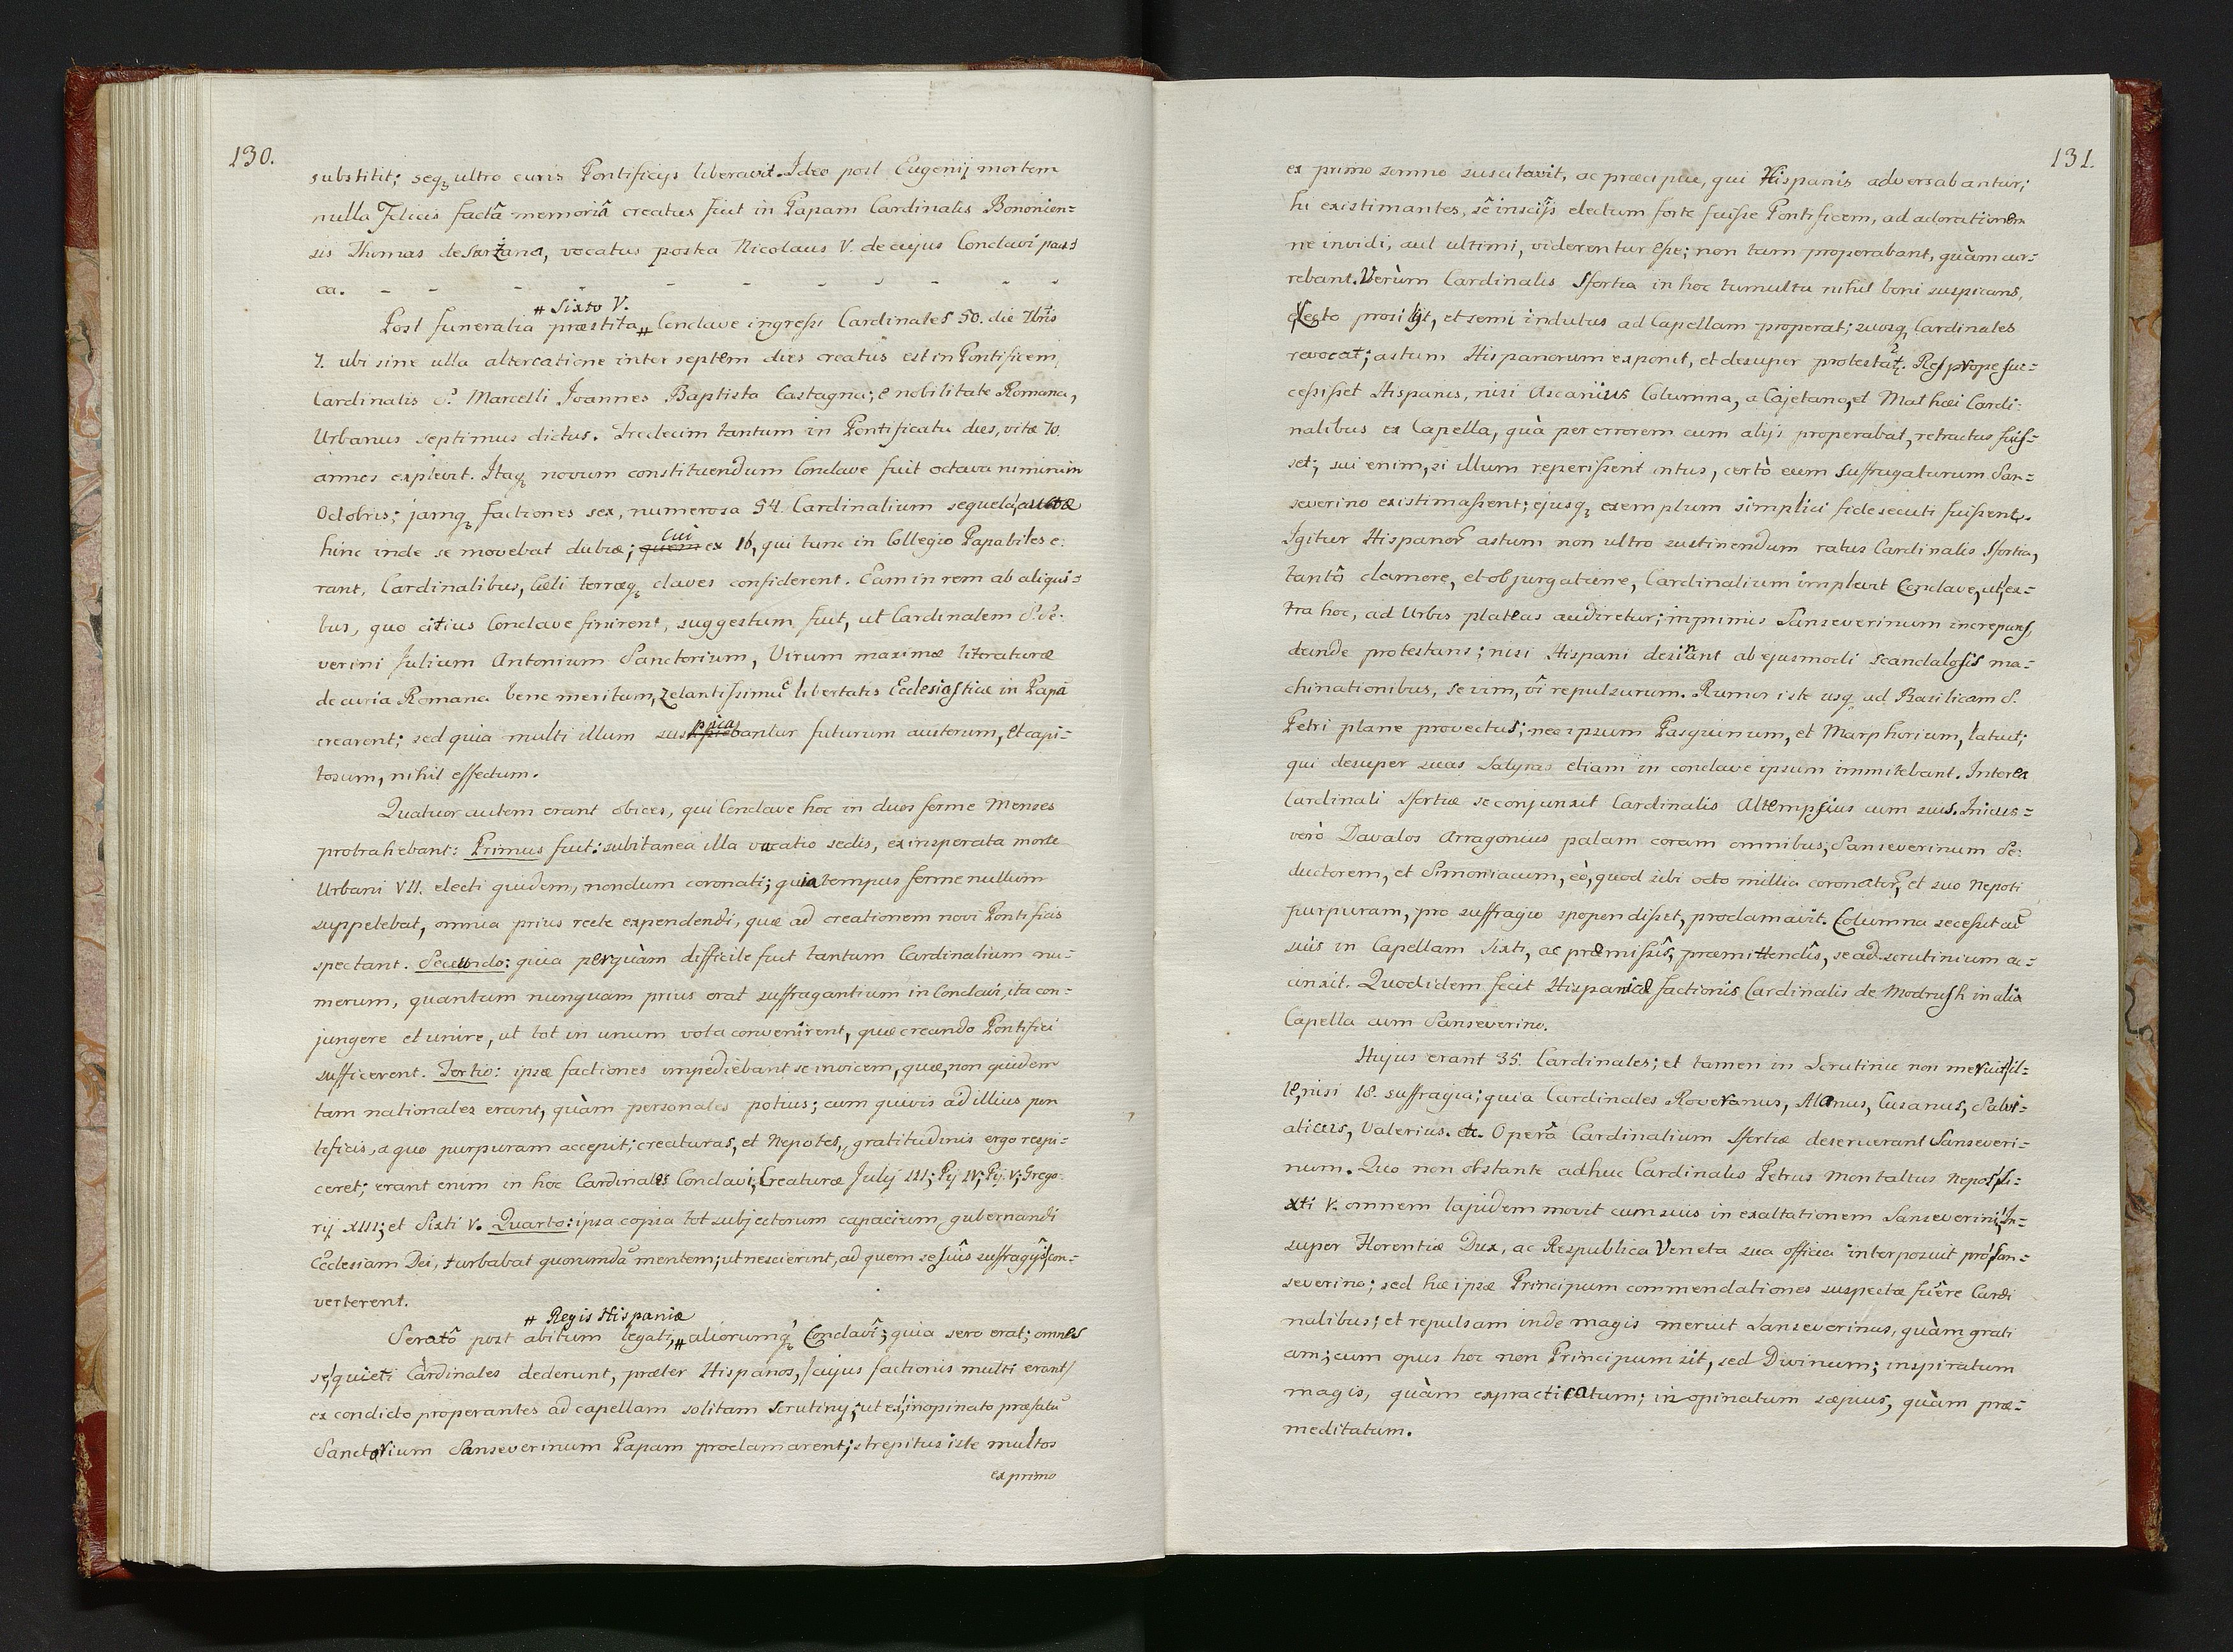 130.
substitit; seqꝫ ultro curis Pontificijs liberavit. Ideo post Eugenij mortem
nulla Felicis factâ memoriâ creatus fuit in Papam Cardinalis Bononien=
sis Thomas de Sarzana, vocatus postea Nicolaus V. de cujus Conclavi pau=
ca. - - - - - - - - - - -
# Sixto V.
Post funeralia præstita # Conclave ingressi Cardinales 50. die 7bris
7. ubi sine ulla altercatione inter septem dies creatus est in Pontificem,
Cardinalis S. Marcelli Joannes Baptista Castagna; e nobilitate Romana,
Urbanus septimus dictus. Tredecim tantum in Pontificatu dies, vitæ 70.
annos explevit. Itaqꝫ novum constituendum Conclave fuit octava nimirum
Octobris; jamqꝫ factiones sex, numerosa 54 Cardinalium sequelâ, auctæ
hinc inde se movebat dubiæ; quem cui ex 16, qui tunc in Collegio Papabiles e:
rant, Cardinalibus, Cæli terræqꝫ claves considerent. Eam in rem ab aliqui=
bus, quo citius Conclave finirent, suggestum fuit, ut Cardinalem S. Se:
verini Julium Antonium Sanctorium, Virum maximæ literaturæ
de curia Romana bene meritum, zelantissimũ libertatis Ecclesiasticæ in Papã
crearent; sed quia multi illum suspicabantur futurum austerum, et capi=
tosum, nihil effectum.
Quatuor autem erant obices, qui Conclave hoc in duos ferme Menses
protrahebant: Primus fuit: subitanea illa vacatio sedis, ex insperata morte
Urbani VII. electi quidem, nondum coronati; quia tempus ferme nullum
suppetebat, omnia prius recte expendendi, quæ ad creationem novi Pontificis
spectant. Secundo: quia perquàm difficile fuit tantum Cardinalium nu=
merum, quantum nunquam prius erat suffragantium in Conclavi, ita con=
jungere et unire, ut tot in unum vota convenirent, quæ creando Pontifici
sufficerent. Tertio: ipsæ factiones impediebant se invicem, quæ, non quidem
tam nationales erant, quàm personales potius; cum quivis ad illius pon
tificis, a quo purpuram accepit; creaturas, et Nepotes, gratitudinis ergo respi=
ceret; erant enim in hoc Cardinales Conclavi, Creaturæ Julij III; Pij IV; Pij V; Grego:
rij XIII; et Sixti V. Quarto: ipsa copia tot subjectorum capacium, gubernandi
Ecclesiam Dei, turbabat quorundã mentem; ut nescierint, ad quem se suis suffragijs con=
verterent.
# Regis Hispaniæ
Seratô post abitum legati, # aliorumqꝫ Conclavî; quia sero erat; omnes
se quieti Cardinales dederunt, præter Hispanos, /cujus factionis multi erant/
ex condicto properantes ad capellam solitam scrutinij; ut ex inopinato præfatũ
Sanctorium Sanseverinum Papam proclamarent; strepitus iste multos
ex primo
131.
ex primo somno suscitavit, ac præcipue, qui Hispanis adversabantur;
hi existimantes, sê insciîs electum forte fuisse Pontificem, ad adorationem
ne invidi, aut ultimi, viderentur esse; non tam properabant, quàm cur=
rebant. Verùm Cardinalis Sfortia in hoc tumultu nihil boni suspicans,
Lecto prosilijt, et semi indutus ad Capellam properat; suosqꝫ Cardinales
revocat; astum Hispanorum exponit, et desuper protestatr. Res prope suc=
cessisset Hispanis, nisi Ascanius Columna, a Cajetano, et Mathæi Cardi:
nalibus ex Capella, quà per errorem cum alijs properabat, retractus fuis=
set; sui enim, si illum reperissent intus, certò eum suffragaturum San=
severino existimassent; ejusqꝫ exemplum simplici fide secuti fuissent.
Igitur Hispanor astum non ultro sustinendum ratus Cardinalis Sfortia,
tantô clamore, et objurgatione, Cardinalium implevit Conclave, ut, ex=
tra hoc, ad Urbis plateas audiretur; inprimis Sanseverinum increpans,
deinde protestans; nisi Hispani desinant ab ejusmodi scandalosis ma=
chinationibus, se vim, vî repulsurum. Rumor iste usqꝫ ad Basilicam S.
Petri plane provectus; nec ipsum Pasquinum, et Marphorium, latuit;
qui desuper suas Satyras etiam in conclave ipsum immitebant. Interea
Cardinali Sfortiæ se conjunxit Cardinalis Altempsius cum suis. Inicus=
verò Davalos Arragonius palam coram omnibus; Sanseverinum Se:
ductorem, et Simoniacum, eò, quod sibi octo millia coronator, et suo Nepoti
purpuram, pro suffragio spopondisset, proclamavit. Columna secessit cũ
suis in Capellam Sixti, ac præmissîs, præmittendîs, se ad scrutinium ac=
cinxit. Quod idem fecit Hispanicæ factionis Cardinalis de Modrush in alia
Capella cum Sanseverino.
Hujus erant 35. Cardinales; et tamen in Scrutinio non meruit il=
le, nisi 18. suffragia; quia Cardinales Roveranus, Alanus, Cusanus, Salvi=
aticus, Valerius. etc. Operâ Cardinalium Sfortiæ deseruerant Sanseveri=
num. Quo non obstante adhuc Cardinalis Petrus Montaltus Nepos Si=
xti V. omnem lapidem movit cum suis in exaltationem Sanseverini; In=
super Florentiæ Dux, ac Respublica Veneta sua officia interposuit pro San=
severino; sed hæ ipsæ Principum commendationes suspectæ fuêre Cardi
nalibus; et repulsam inde magis meruit Sanseverinus, quàm grati
am; cum opus hoc non Principum sit, sed Divinum; inspiratum
magis, quàm expracticatum; inopinatum sæpius, quàm præ=
meditatum.